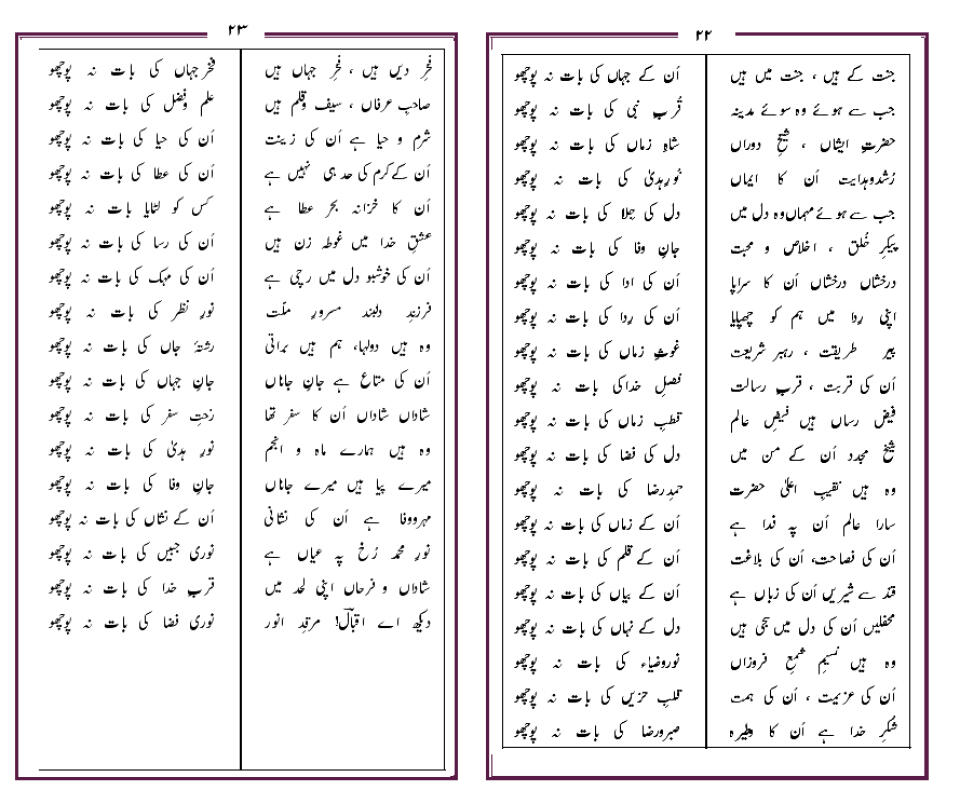 ۲۲
جنت کے ہیں ، جنت میں ہیں اُن کے جہاں کی بات نہ پوچھو
جب سے ہوئے وہ سوئے مدینہ قُربِ نبی کی بات نہ پوچھو
حضرتِ ایشاں ، شیخِ دوراں شاہِ زماں کی بات نہ پوچھو
رُشدوہدایت اُن کا ایماں نورِہدیٰ کی بات نہ پوچھو
جب سے ہوئے مہماں وہ دل میں دل کی جِلا کی بات نہ پوچھو
پیکرِ خُلق ، اخلاص و محبت جانِ وفا کی بات نہ پوچھو
درخشاں درخشاں اُن کا سراپا اُن کی ادا کی بات نہ پوچھو
اپنی رِدا میں ہم کو چھپایا اُن کی رِدا کی بات نہ پوچھو
پیر طریقت ، رہبر شریعت غوثِ زماں کی بات نہ پوچھو
اُن کی قربت ، قربِ رسالت فصلِ خداکی بات نہ پوچھو
فیض رساں ہیں فیضِ عالم قطبِ زماں کی بات نہ پوچھو
شیخ مجدد اُن کے من میں دل کی فضا کی بات نہ پوچھو
وہ ہیں نقیبِ اعلیٰ حضرت حمدِرضا کی بات نہ پوچھو
سارا عالم اُن پہ فدا ہے اُن کے زماں کی بات نہ پوچھو
اُن کی فصاحت، اُن کی بلاغت اُن کے قلم کی بات نہ پوچھو
قند سے شیریں اُن کی زباں ہے اُن کے بیاں کی بات نہ پوچھو
محفلیں اُن کی دل میں سجی ہیں دل کے نہاں کی بات نہ پوچھو
وہ ہیں نسیمِ شمعِ فروزاں نوروضیاء کی بات نہ پوچھو
اُن کی عزیمت ، اُن کی ہمت قلبِ حزیں کی بات نہ پوچھو
شُکرِ خدا ہے اُن کا وطیرہ صبرورضا کی بات نہ پوچھو
۲۳
فخرِ دیں ہیں ، فخرِ جہاں ہیں فخر جہاں کی بات نہ پوچھو
صاحبِ عرفاں ، سیف وقلم ہیں علم وفضل کی بات نہ پوچھو
شرم و حیا ہے اُن کی زینت اُن کی حیا کی بات نہ پوچھو
اُن کے کرم کی حد ہی نہیں ہے اُن کی عطا کی بات نہ پوچھو
اُن کا خزانہ بحرِ عطا ہے کس کو لٹایا بات نہ پوچھو
عشقِ خدا میں غوطہ زن ہیں اُن کی رسا کی بات نہ پوچھو
اُن کی خوشبو دل میں رچی ہے اُن کی مہک کی بات نہ پوچھو
فرزندِ دلبند مسرورِ ملّت نورِ نظر کی بات نہ پوچھو
وہ ہیں دولہا، ہم ہیں براتی رشتۂ جاں کی بات نہ پوچھو
اُن کی متاع ہے جانِ جاناں جانِ جہاں کی بات نہ پوچھو
شاداں شاداں اُن کا سفر تھا رختِ سفر کی بات نہ پوچھو
وہ ہیں ہمارے ماہ و انجم نورِ ہدیٰ کی بات نہ پوچھو
میرے پیا ہیں میرے جاناں جانِ وفا کی بات نہ پوچھو
مہرووفا ہے اُن کی نشانی اُن کے نشاں کی بات نہ پوچھو
نورِ محمد رُخ پہ عیاں ہے نوری جبیں کی بات نہ پوچھو
شاداں و فرحاں اپنی لحد میں قربِ خدا کی بات نہ پوچھو
دیکھ اے اقبالؔ! مرقدِ انور نوری فضا کی بات نہ پوچھو